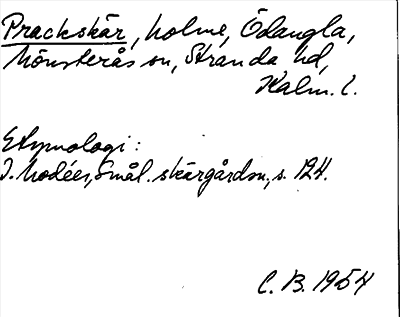 Prackskär, holme, Ödängla,
Mönsterås sn, Stranda hd,
Kalm. l.
Etymologi:
I. Modéer, Smål. skärgårdsn., s. 124.
C. B. 1954